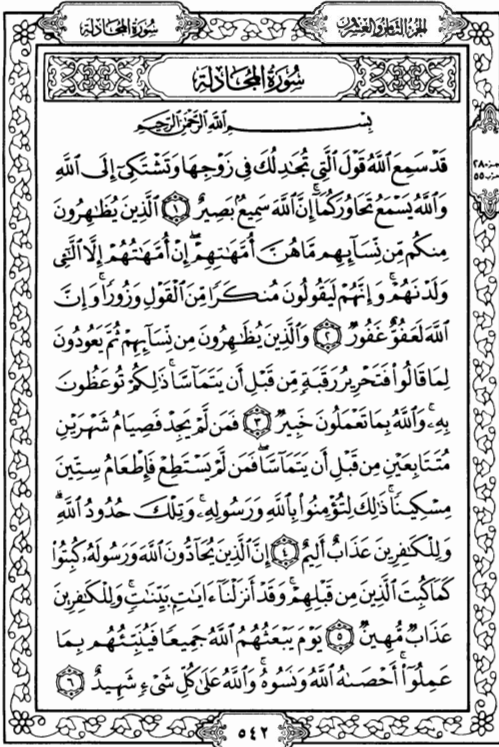 الجزء الثامن والعشرون
سُورَةُ المُجَادلة
سُورَةُ المُجَادلة
بِسْمِ ٱللَّهِ ٱلرَّحْمَٰنِ ٱلرَّحِيمِ
قَدْ سَمِعَ ٱللَّهُ قَوْلَ ٱلَّتِي تُجَٰدِلُكَ فِي زَوْجِهَا وَتَشْتَكِىٓ إِلَى ٱللَّهِ
وَٱللَّهُ يَسْمَعُ تَحَاوُرَكُمَآۚ إِنَّ ٱللَّهَ سَمِيعٌۢ بَصِيرٌ ۝١ ٱلَّذِينَ يُظَٰهِرُونَ
مِنكُم مِّن نِّسَآئِهِم مَّا هُنَّ أُمَّهَٰتِهِمْۖ إِنْ أُمَّهَٰتُهُمْ إِلَّا ٱلَّٰٓـِٔي
وَلَدْنَهُمْۚ وَإِنَّهُمْ لَيَقُولُونَ مُنكَرًا مِّنَ ٱلْقَوْلِ وَزُورًاۚ وَإِنَّ
ٱللَّهَ لَعَفُوٌّ غَفُورٌ ۝٢ وَٱلَّذِينَ يُظَٰهِرُونَ مِن نِّسَآئِهِمْ ثُمَّ يَعُودُونَ
لِمَا قَالُوا۟ فَتَحْرِيرُ رَقَبَةٍ مِّن قَبْلِ أَن يَتَمَآسَّاۚ ذَٰلِكُمْ تُوعَظُونَ
بِهِۦۚ وَٱللَّهُ بِمَا تَعْمَلُونَ خَبِيرٌ ۝٣ فَمَن لَّمْ يَجِدْ فَصِيَامُ شَهْرَيْنِ
مُتَتَابِعَيْنِ مِن قَبْلِ أَن يَتَمَآسَّاۖ فَمَن لَّمْ يَسْتَطِعْ فَإِطْعَامُ سِتِّينَ
مِسْكِينًاۚ ذَٰلِكَ لِتُؤْمِنُوا۟ بِٱللَّهِ وَرَسُولِهِۦۚ وَتِلْكَ حُدُودُ ٱللَّهِۗ
وَلِلْكَٰفِرِينَ عَذَابٌ أَلِيمٌ ۝٤ إِنَّ ٱلَّذِينَ يُحَآدُّونَ ٱللَّهَ وَرَسُولَهُۥ كُبِتُوا۟
كَمَا كُبِتَ ٱلَّذِينَ مِن قَبْلِهِمْۚ وَقَدْ أَنزَلْنَآ ءَايَٰتٍۭ بَيِّنَٰتٍۚ وَلِلْكَٰفِرِينَ
عَذَابٌ مُّهِينٌ ۝٥ يَوْمَ يَبْعَثُهُمُ ٱللَّهُ جَمِيعًا فَيُنَبِّئُهُم بِمَا
عَمِلُوٓا۟ۚ أَحْصَىٰهُ ٱللَّهُ وَنَسُوهُۚ وَٱللَّهُ عَلَىٰ كُلِّ شَىْءٍ شَهِيدٌ ۝٦
٥٤٢